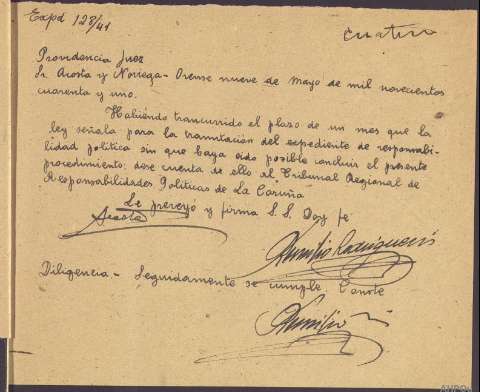 Expd 128/41
cuatro
Providencia Juez
Sr. Acosta y Noriega - Orense nueve de mayo de mil novecientos
cuarenta y uno.
Habiendo trancurrido el plazo de un mes que la
ley señala para la tramitación del expediente de responsabi-
lidad política sin que haya sido posible concluir el presente
procedimiento; dese cuenta de ello al Tribunal Regional de
Responsabilidades Políticas de La Coruña
Lo preveyó y firma S.S. Doy fe
Acosta
Aurilio Rodriguez
Diligencia - Seguidamente se cumple. Conste